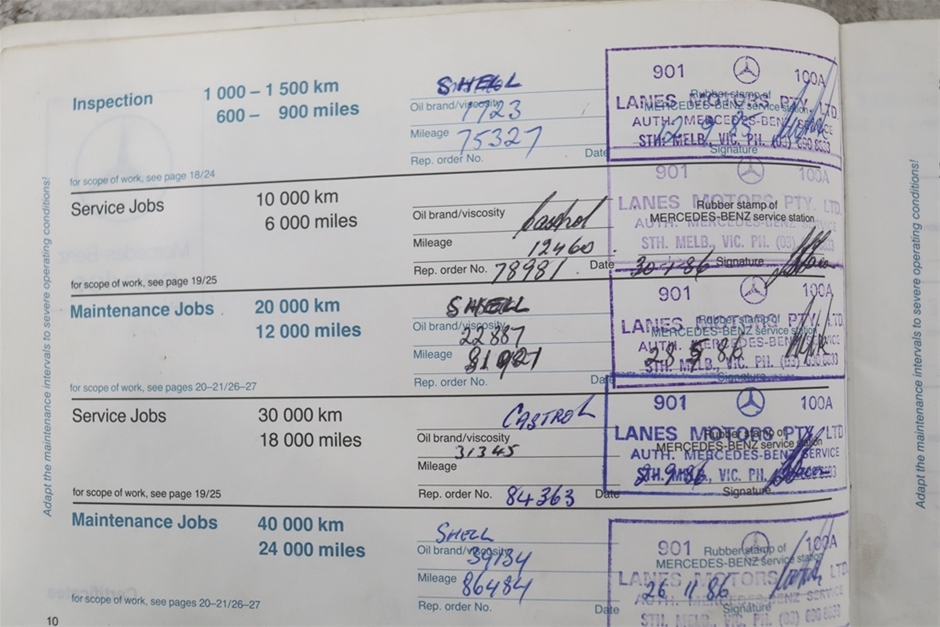 Adapt the maintenance intervals to severe operating conditions!
Inspection 1 000 – 1 500 km
600 – 900 miles
SHELL
Oil brand/viscosity
1723
Mileage
75327
Rep. order No. Date
for scope of work, see page 18/24
901 100A
Rubber stamp of
LANES MOTORS PTY. LTD.
MERCEDES-BENZ service station
AUTH. MERCEDES-BENZ SERVICE
STH. MELB., VIC. PH. (03) 690 8833
Signature
Service Jobs 10 000 km
6 000 miles
Castrol
Oil brand/viscosity
Mileage 12460
Rep. order No. 78981 Date
for scope of work, see page 19/25
901 100A
Rubber stamp of
LANES MOTORS PTY. LTD.
MERCEDES-BENZ service station
AUTH. MERCEDES-BENZ
STH. MELB., VIC. PH. (03)
30-1-86 Signature
Maintenance Jobs 20 000 km
12 000 miles
SHELL
Oil brand/viscosity
22887
Mileage
Rep. order No. Date
for scope of work, see pages 20–21/26–27
901 100A
Rubber stamp of
LANES MOTORS PTY. LTD
MERCEDES-BENZ service station
AUTH. MERCEDES-BENZ
28 5 86
STH. MELB., VIC. PH.
Signature
Service Jobs 30 000 km
18 000 miles
CASTROL
Oil brand/viscosity
31345
Mileage
Rep. order No. 84363 Date
for scope of work, see page 19/25
901 100A
Rubber stamp of
LANES MOTORS PTY. LTD
MERCEDES-BENZ service station
AUTH. MERCEDES-BENZ SERVICE
STH. MELB., VIC. PH.
Signature
Maintenance Jobs 40 000 km
24 000 miles
SHELL
Oil brand/viscosity
39134
Mileage
86484
Rep. order No. Date
for scope of work, see pages 20–21/26–27
901 100A
Rubber stamp of
MERCEDES-BENZ service station
LANES MOTORS PTY. LTD
26 11 86
AUTH. MERCEDES-BENZ SERVICE
Signature
STH. MELB., VIC. PH. (03) 690 8833
10
Adapt the maintenance intervals to severe operating conditions!